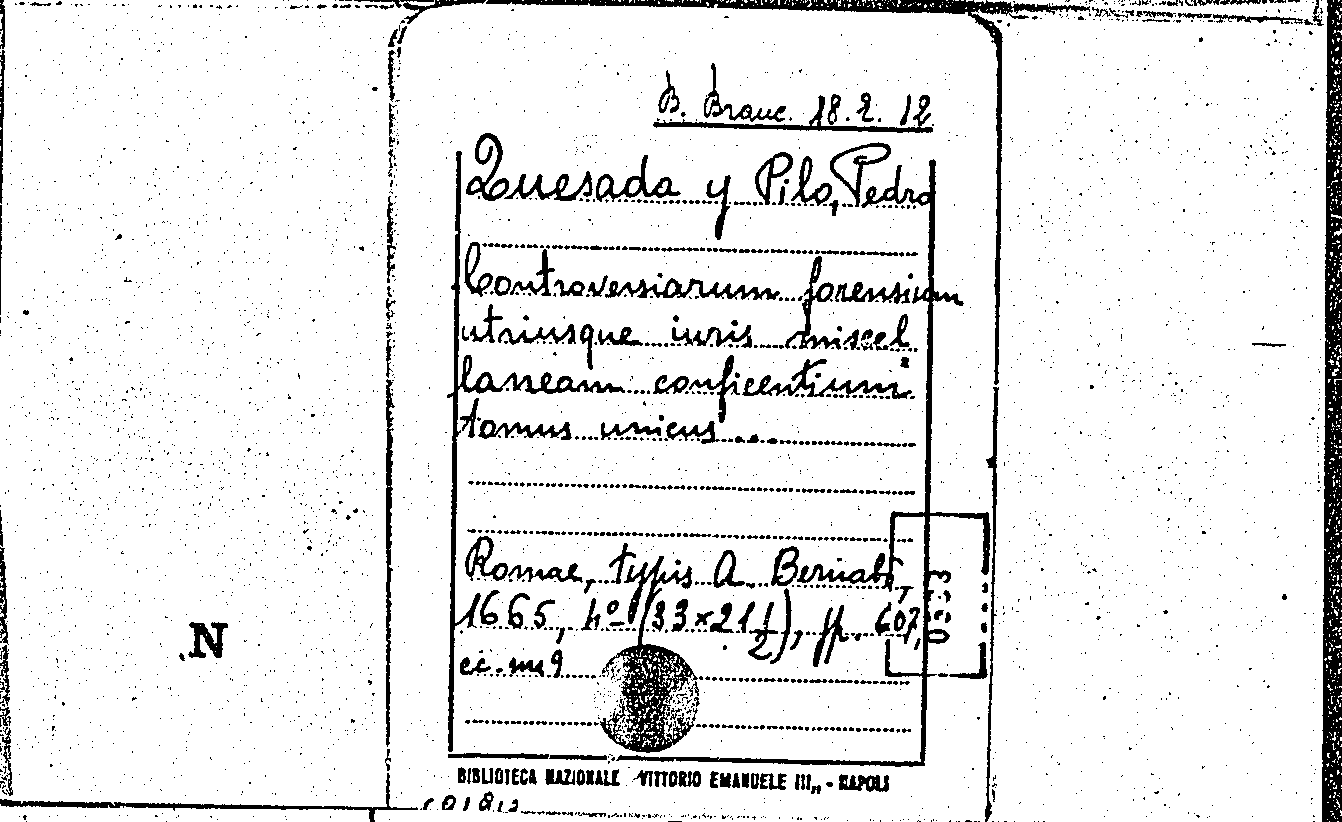 B. Branc. 18. 2. 12
Quesada y Pilo, Pedro
Controversiarum forensium
utriusque iuris miscel
laneam conficentium
tomus unicus ...
Romae, typis A. Bernabò,
1665, 4º (33×21 1/2), pp. 607,
N
BIBLIOTECA NAZIONALE VITTORIO EMANUELE III„ - NAPOLI